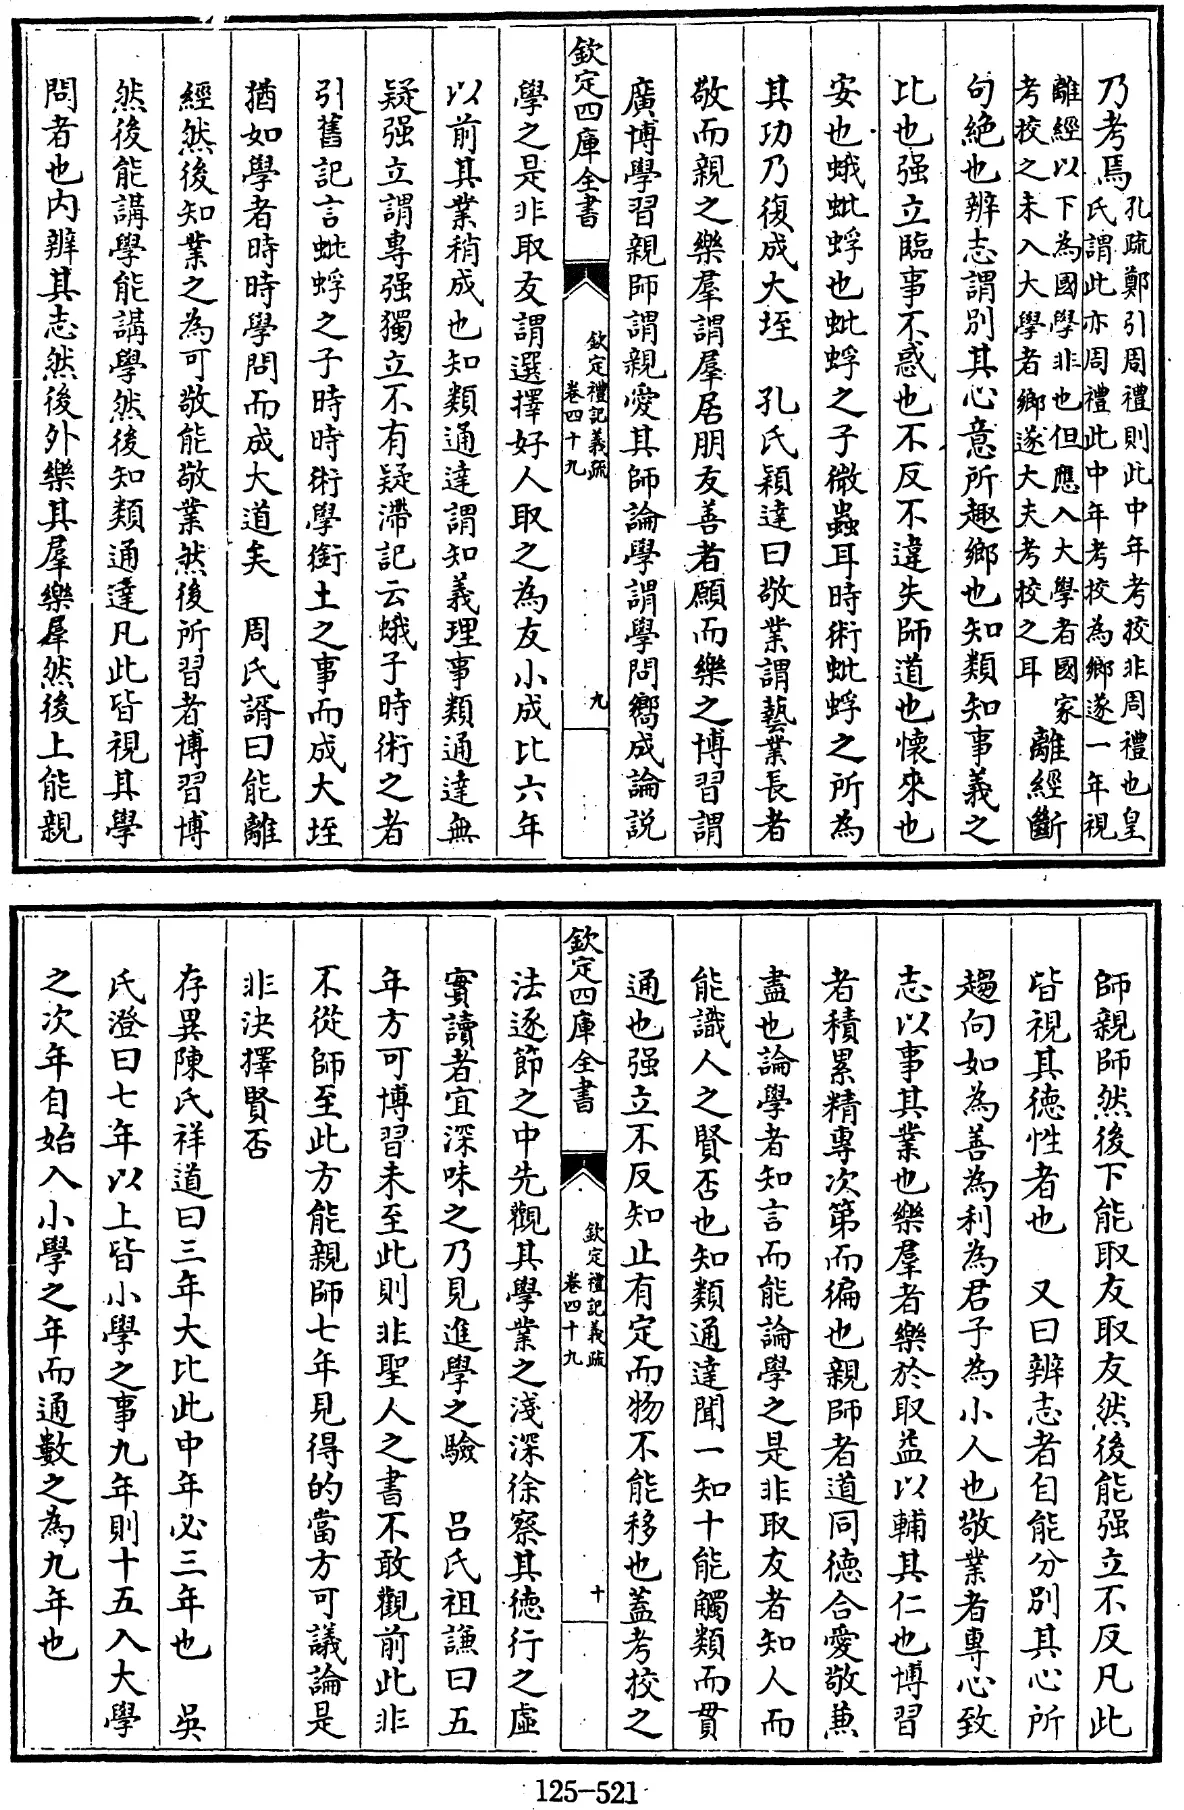 乃考焉孔疏鄭引周禮則此中年考挍非周禮也皇
氏謂此亦周禮此中年考校為鄉遂一年視
離經以下為國學非也但應入大學者國家
考校之未入大學者鄉遂大夫考校之耳離經斷
句絶也辨志謂别其心意所趣鄉也知類知事義之
比也强立臨事不惑也不反不違失師道也懷來也
安也蛾蚍蜉也蚍蜉之子微蟲耳時術蚍蜉之所為
其功乃復成大垤 孔氏穎達曰敬業謂藝業長者
敬而親之樂羣謂羣居朋友善者願而樂之博習謂
廣博學習親師謂親愛其師論學謂學問嚮成論説
欽定四庫全書
欽定禮記義疏
卷四十九
九
學之是非取友謂選擇好人取之為友小成比六年
以前其業稍成也知類通達謂知義理事類通達無
疑强立謂專强獨立不有疑滯記云蛾子時術之者
引舊記言蚍蜉之子時時術學銜土之事而成大垤
猶如學者時時學問而成大道矣 周氏諝曰能離
經然後知業之為可敬能敬業然後所習者博習博
然後能講學能講學然後知類通達凡此皆視其學
問者也内辨其志然後外樂其羣樂羣然後上能親
師親師然後下能取友取友然後能强立不反凡此
皆視其德性者也 又曰辨志者自能分别其心所
趨向如為善為利為君子為小人也敬業者專心致
志以事其業也樂羣者樂於取益以輔其仁也博習
者積累精專次第而徧也親師者道同德合愛敬兼
盡也論學者知言而能論學之是非取友者知人而
能識人之賢否也知類通達聞一知十能觸類而貫
通也强立不反知止有定而物不能移也蓋考挍之
欽定四庫全書
欽定禮記義疏
卷四十九
十
法逐節之中先觀其學業之淺深徐察其德行之虚
實讀者宜深味之乃見進學之驗 吕氏祖謙曰五
年方可博習未至此則非聖人之書不敢觀前此非
不從師至此方能親師七年見得的當方可議論是
非決擇賢否
存異陳氏祥道曰三年大比此中年必三年也 吳
氏澄曰七年以上皆小學之事九年則十五入大學
之次年自始入小學之年而通數之為九年也
125-521